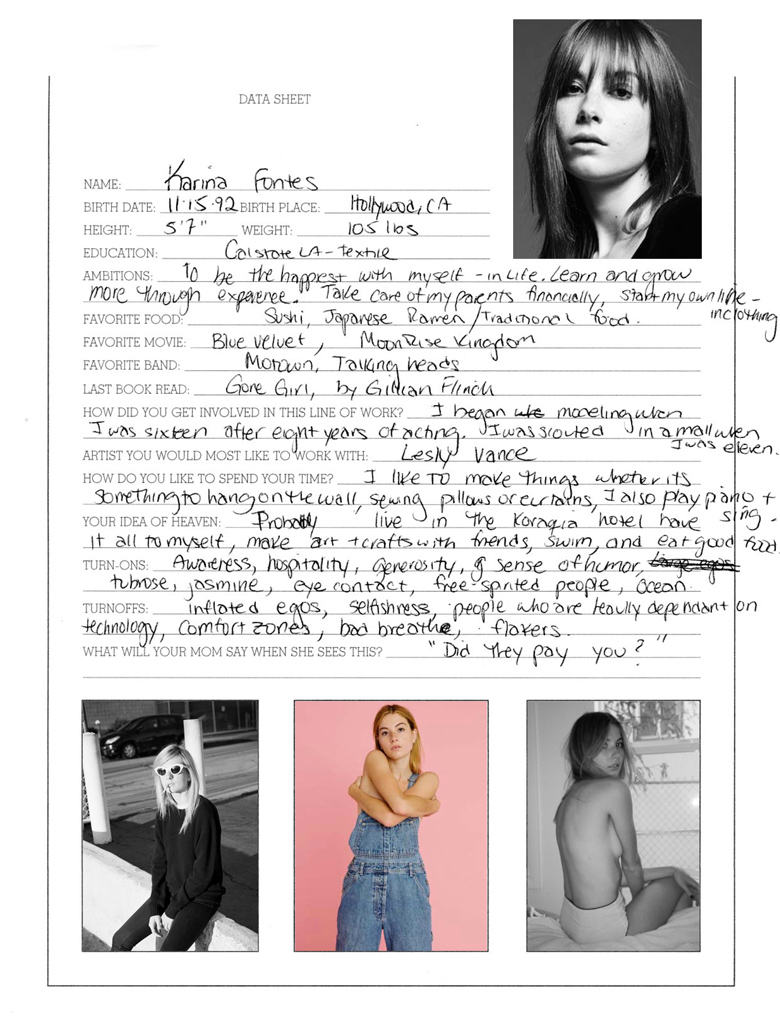 DATA SHEET
NAME: Karina Fontes
BIRTH DATE: 11.15.92 BIRTH PLACE: Hollywood, CA
HEIGHT: 5'7" WEIGHT: 105 lbs
EDUCATION: Calstate LA - Textile
AMBITIONS: To be the happiest with myself - in life. Learn and grow
more through experience. Take care of my parents financially, start my own line -
in clothing
FAVORITE FOOD: Sushi, Japanese Ramen / Traditional food.
FAVORITE MOVIE: Blue Velvet, MoonRise Kingdom
FAVORITE BAND: Motown, Talking heads
LAST BOOK READ: Gone Girl, by Gillian Flinch
HOW DID YOU GET INVOLVED IN THIS LINE OF WORK? I began modeling when
I was sixteen after eight years of acting. I was scouted in a mall when
I was eleven.
ARTIST YOU WOULD MOST LIKE TO WORK WITH: Lesly Vance
HOW DO YOU LIKE TO SPEND YOUR TIME? I like to make things wheter its
something to hang on the wall, sewing pillows or curtains, I also play piano +
sing.
YOUR IDEA OF HEAVEN: Probably live in the Korakia hotel have
it all to myself, make art + crafts with friends, swim, and eat good food.
TURN-ONS: Awareness, hospitality, generosity, sense of humor, large egos
tubrose, jasmine, eye contact, free-spirited people, ocean.
TURNOFFS: inflated egos, selfishness, people who are heavily dependant on
technology, comfort zones, bad breathe, flakers.
WHAT WILL YOUR MOM SAY WHEN SHE SEES THIS? "Did they pay you?"